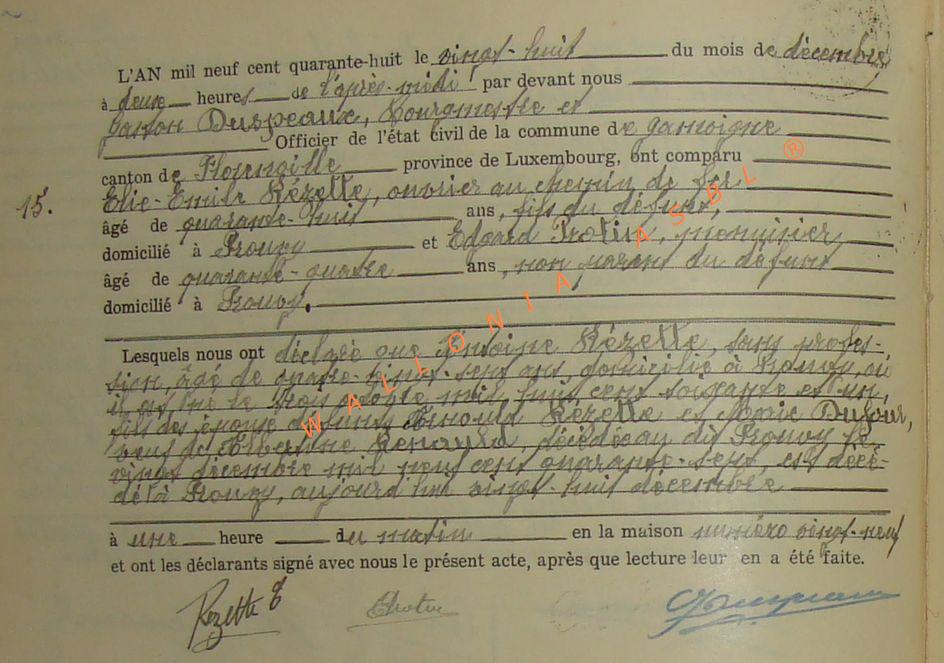 L'AN mil neuf cent quarante-huit le vingt-huit du mois de décembre
à deux heures de l'après-midi par devant nous
Gaston Duspeaux, bourgmestre et
Officier de l'état civil de la commune de Jamoigne
canton de Florenville province de Luxembourg, ont comparu
Elie-Emile Rézette, ouvrier au chemin de fer
15. âgé de quarante-huit ans, fils du défunt,
domicilié à Prouvy et Edgard Protin, menuisier,
âgé de quarante-quatre ans, non parent du défunt
domicilié à Prouvy.
Lesquels nous ont déclaré que Antoine Rézette, sans profes-
sion, âgé de quatre-vingt-sept ans, domicilié à Prouvy, où
il est né le trois octobre mil huit cent soixante et un,
fils des époux défunts Arnould Rézette et Marie Dufour,
veuf de Albertine Renauld, décédée au dit Prouvy le
vingt décembre mil neuf cent quarante-sept, est décé-
dé à Prouvy, aujourd'hui vingt-huit décembre
à une heure du matin en la maison numéro vingt-neuf
et ont les déclarants signé avec nous le présent acte, après que lecture leur en a été faite.
Rezette E
WALLONIA ASBL ®